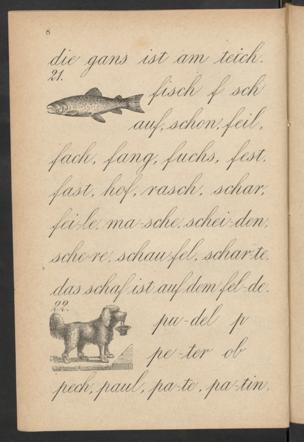 8
die gans ist am teich.
21.
fisch f sch
auf, schon, feil,
fach, fang, fuchs, fest.
fast, hof, rasch, schar,
fei-le, ma-sche, schei-den,
sche-re, schau-fel, schar-te.
das schaf ist auf dem fel-de.
22.
pu-del p
pe-ter ob
pech, paul, pa-te, pa-tin,